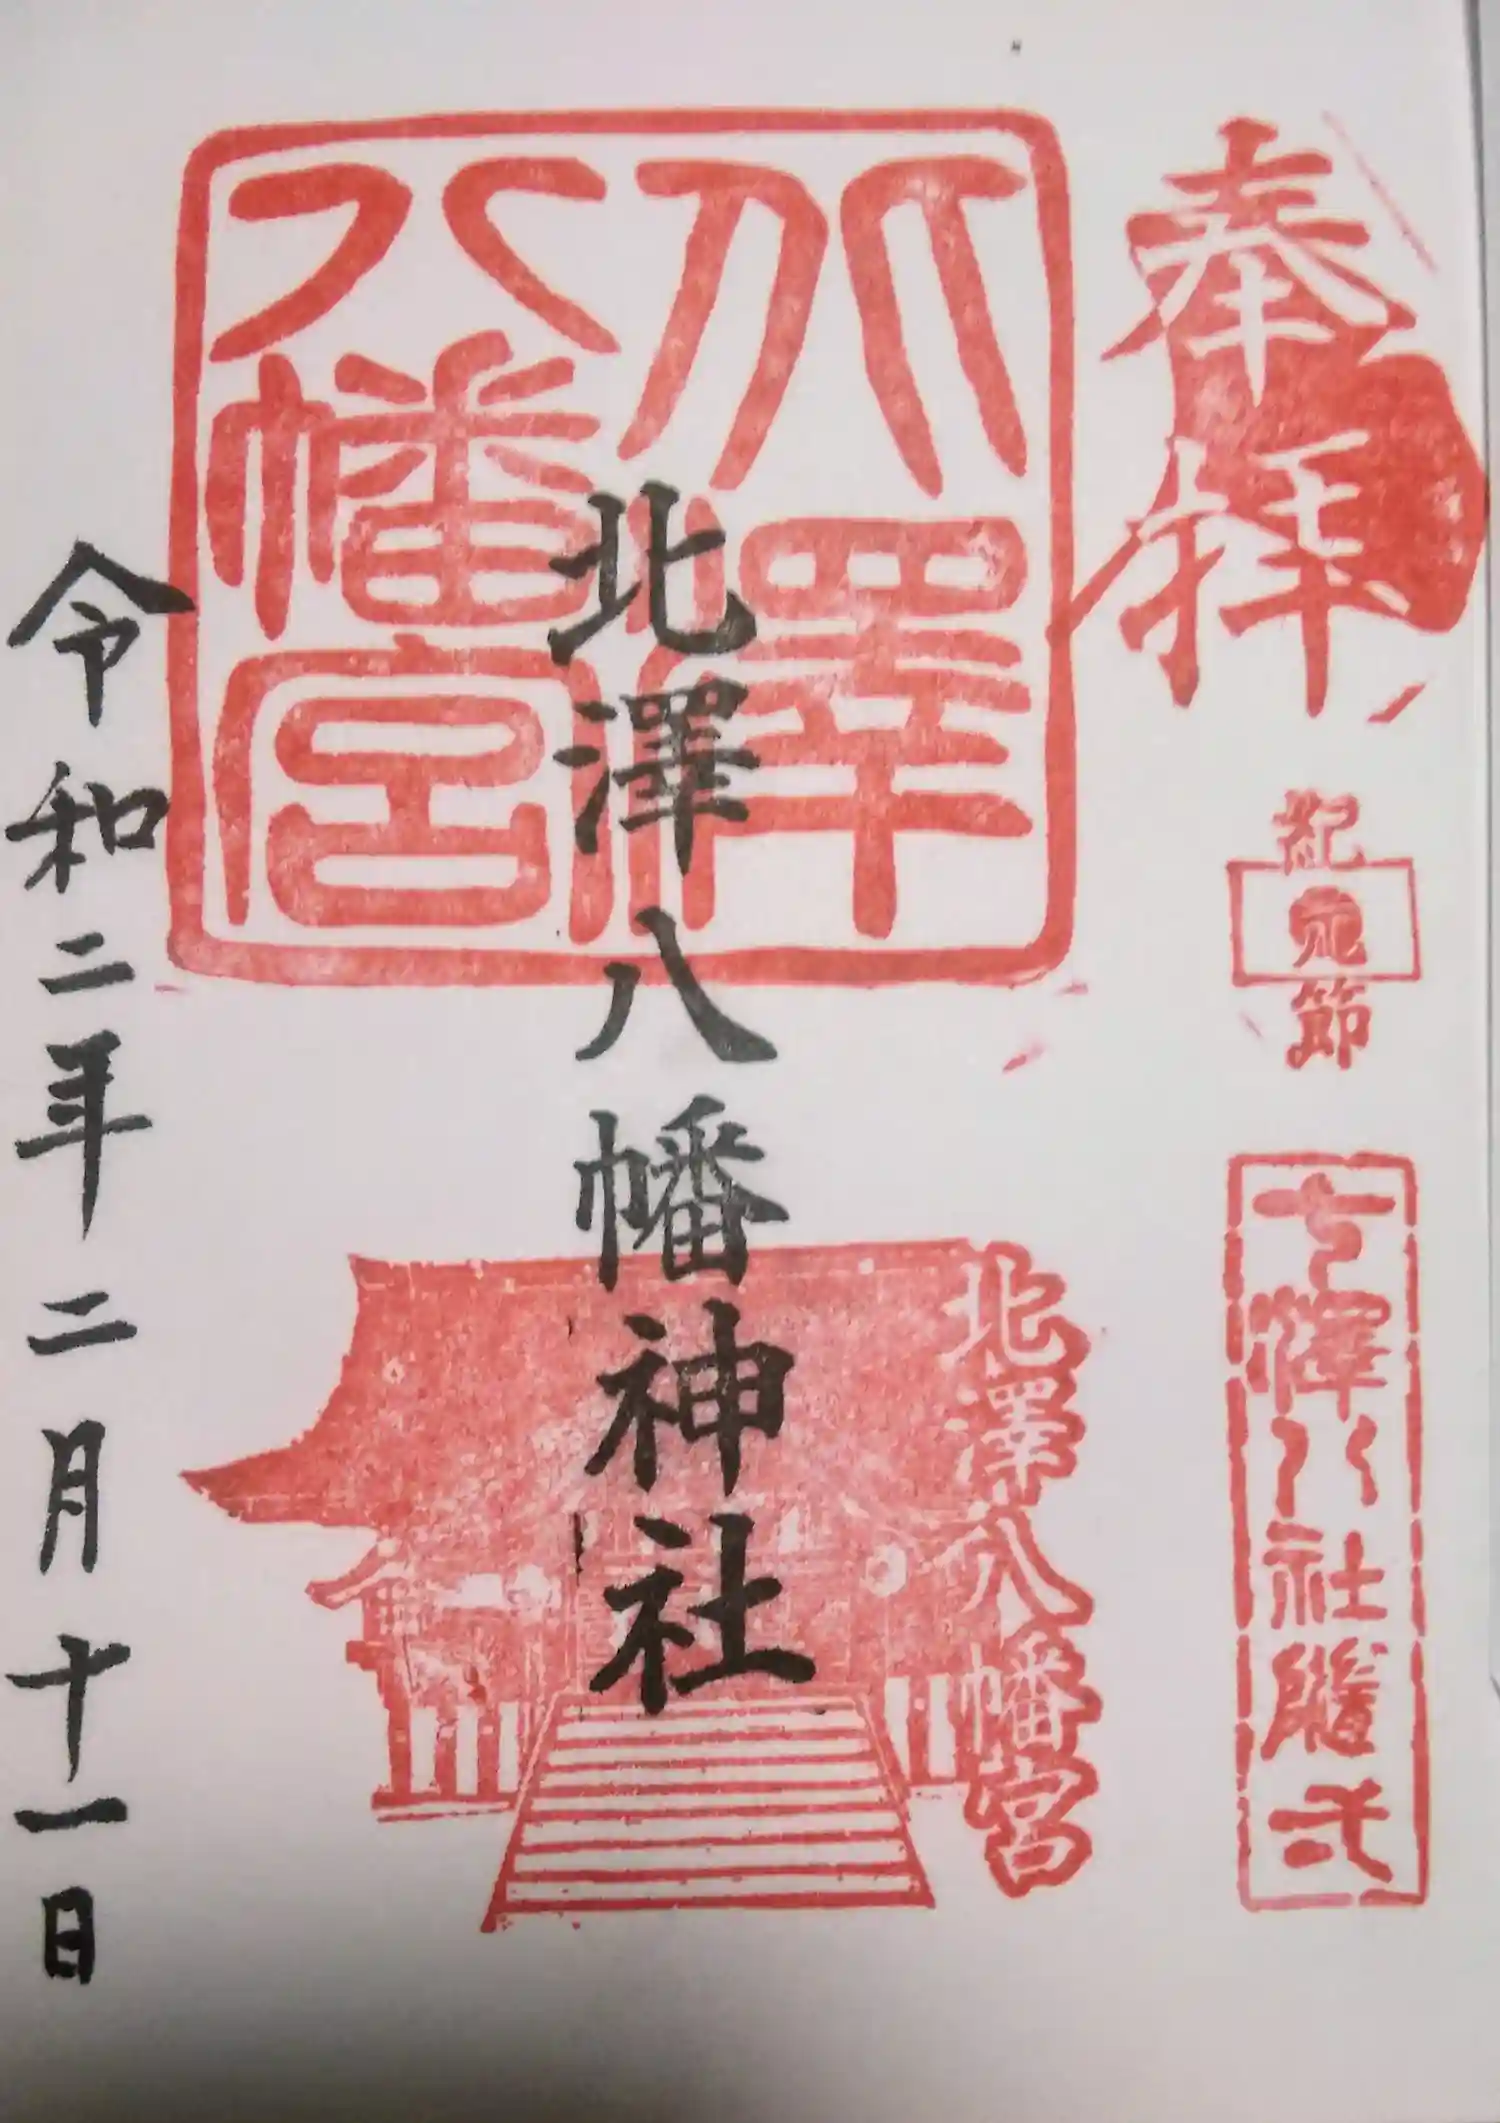 奉拝
紀元節
七澤八社隨弌
北澤八幡宮
北澤八幡神社
北澤八幡宮
令和二年二月十一日